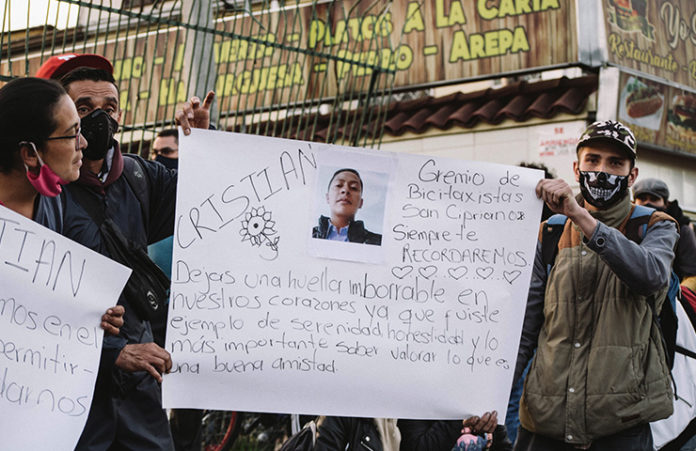 PLATOS A LA CARTA
AREPA
Restaurante
CRISTIAN
Gremio de
Bicitaxistas
San Cipriano
Siempre te
RECORDAREMOS.
Dejas una huella imborrable en
nuestros corazones ya que fuiste
ejemplo de serenidad honestidad y lo
más importante saber valorar lo que es
una buena amistad.
TIAN
mos en el
permitir-
darnos